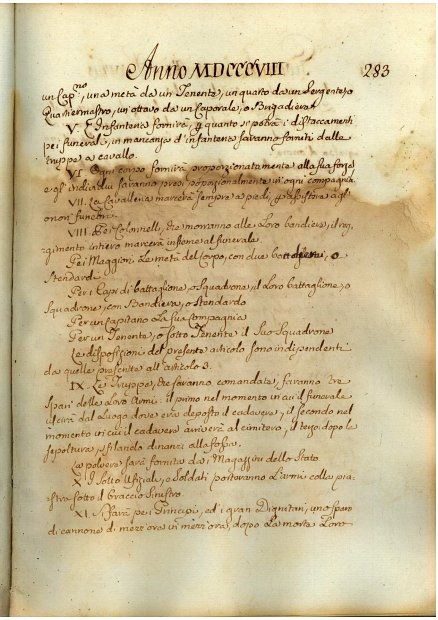 Anno MDCCCVIII 283
un Cap.no, una metà da un Tenente, un quarto da un Sergente, o
Quartiermastro, un ottavo da un Caporale, o Brigadiere.
V. L'Infanteria fornirà, quanto si potrà i distaccamenti
pei funerali, in mancanza d'infanteria saranno forniti dalle
truppe a cavallo.
VI. Ogni corpo fornirà proporzionatamente alla sua forza
e gl'individui saranno presi proporzionalmente in ogni compagnia.
VII. La Cavalleria marcerà sempre a piedi, per assistere agli
onori funebri.
VIII. Pei Colonnelli, che morranno alle Loro bandiere, il reg-
gimento intiero marcerà insieme al funerale.
Pei Maggiori La metà del Corpo, con due bandiere, o
Stendardi.
Per i Capi di battaglione, o Squadrone, il Loro battaglione, o
Squadrone, con Bandiera, o Stendardo
Per un Capitano La sua Compagnia
Per un Tenente, o sotto Tenente il Suo Squadrone
Le disposizioni del presente articolo sono independenti
da quelle prescritte all'articolo 3.
IX. Le Truppe, che saranno comandate, faranno tre
spari delle Loro Armi: il primo nel momento in cui il funerale
uscirà dal Luogo dove era deposto il cadavere, il secondo nel
momento in cui il cadavere arriverà al cimitero, il terzo dopo la
sepoltura, sfilando dinanzi alla fossa.
La polvere sarà fornita da i Magazzini dello Stato.
X. I sotto Ufiziali, e Soldati porteranno L'armi colla pia-
stra sotto il Braccio Sinistro
XI. Si farà pei Principi, ed i gran Dignitari, uno sparo
di cannone di mezz'ora in mezz'ora, dopo La morte Loro